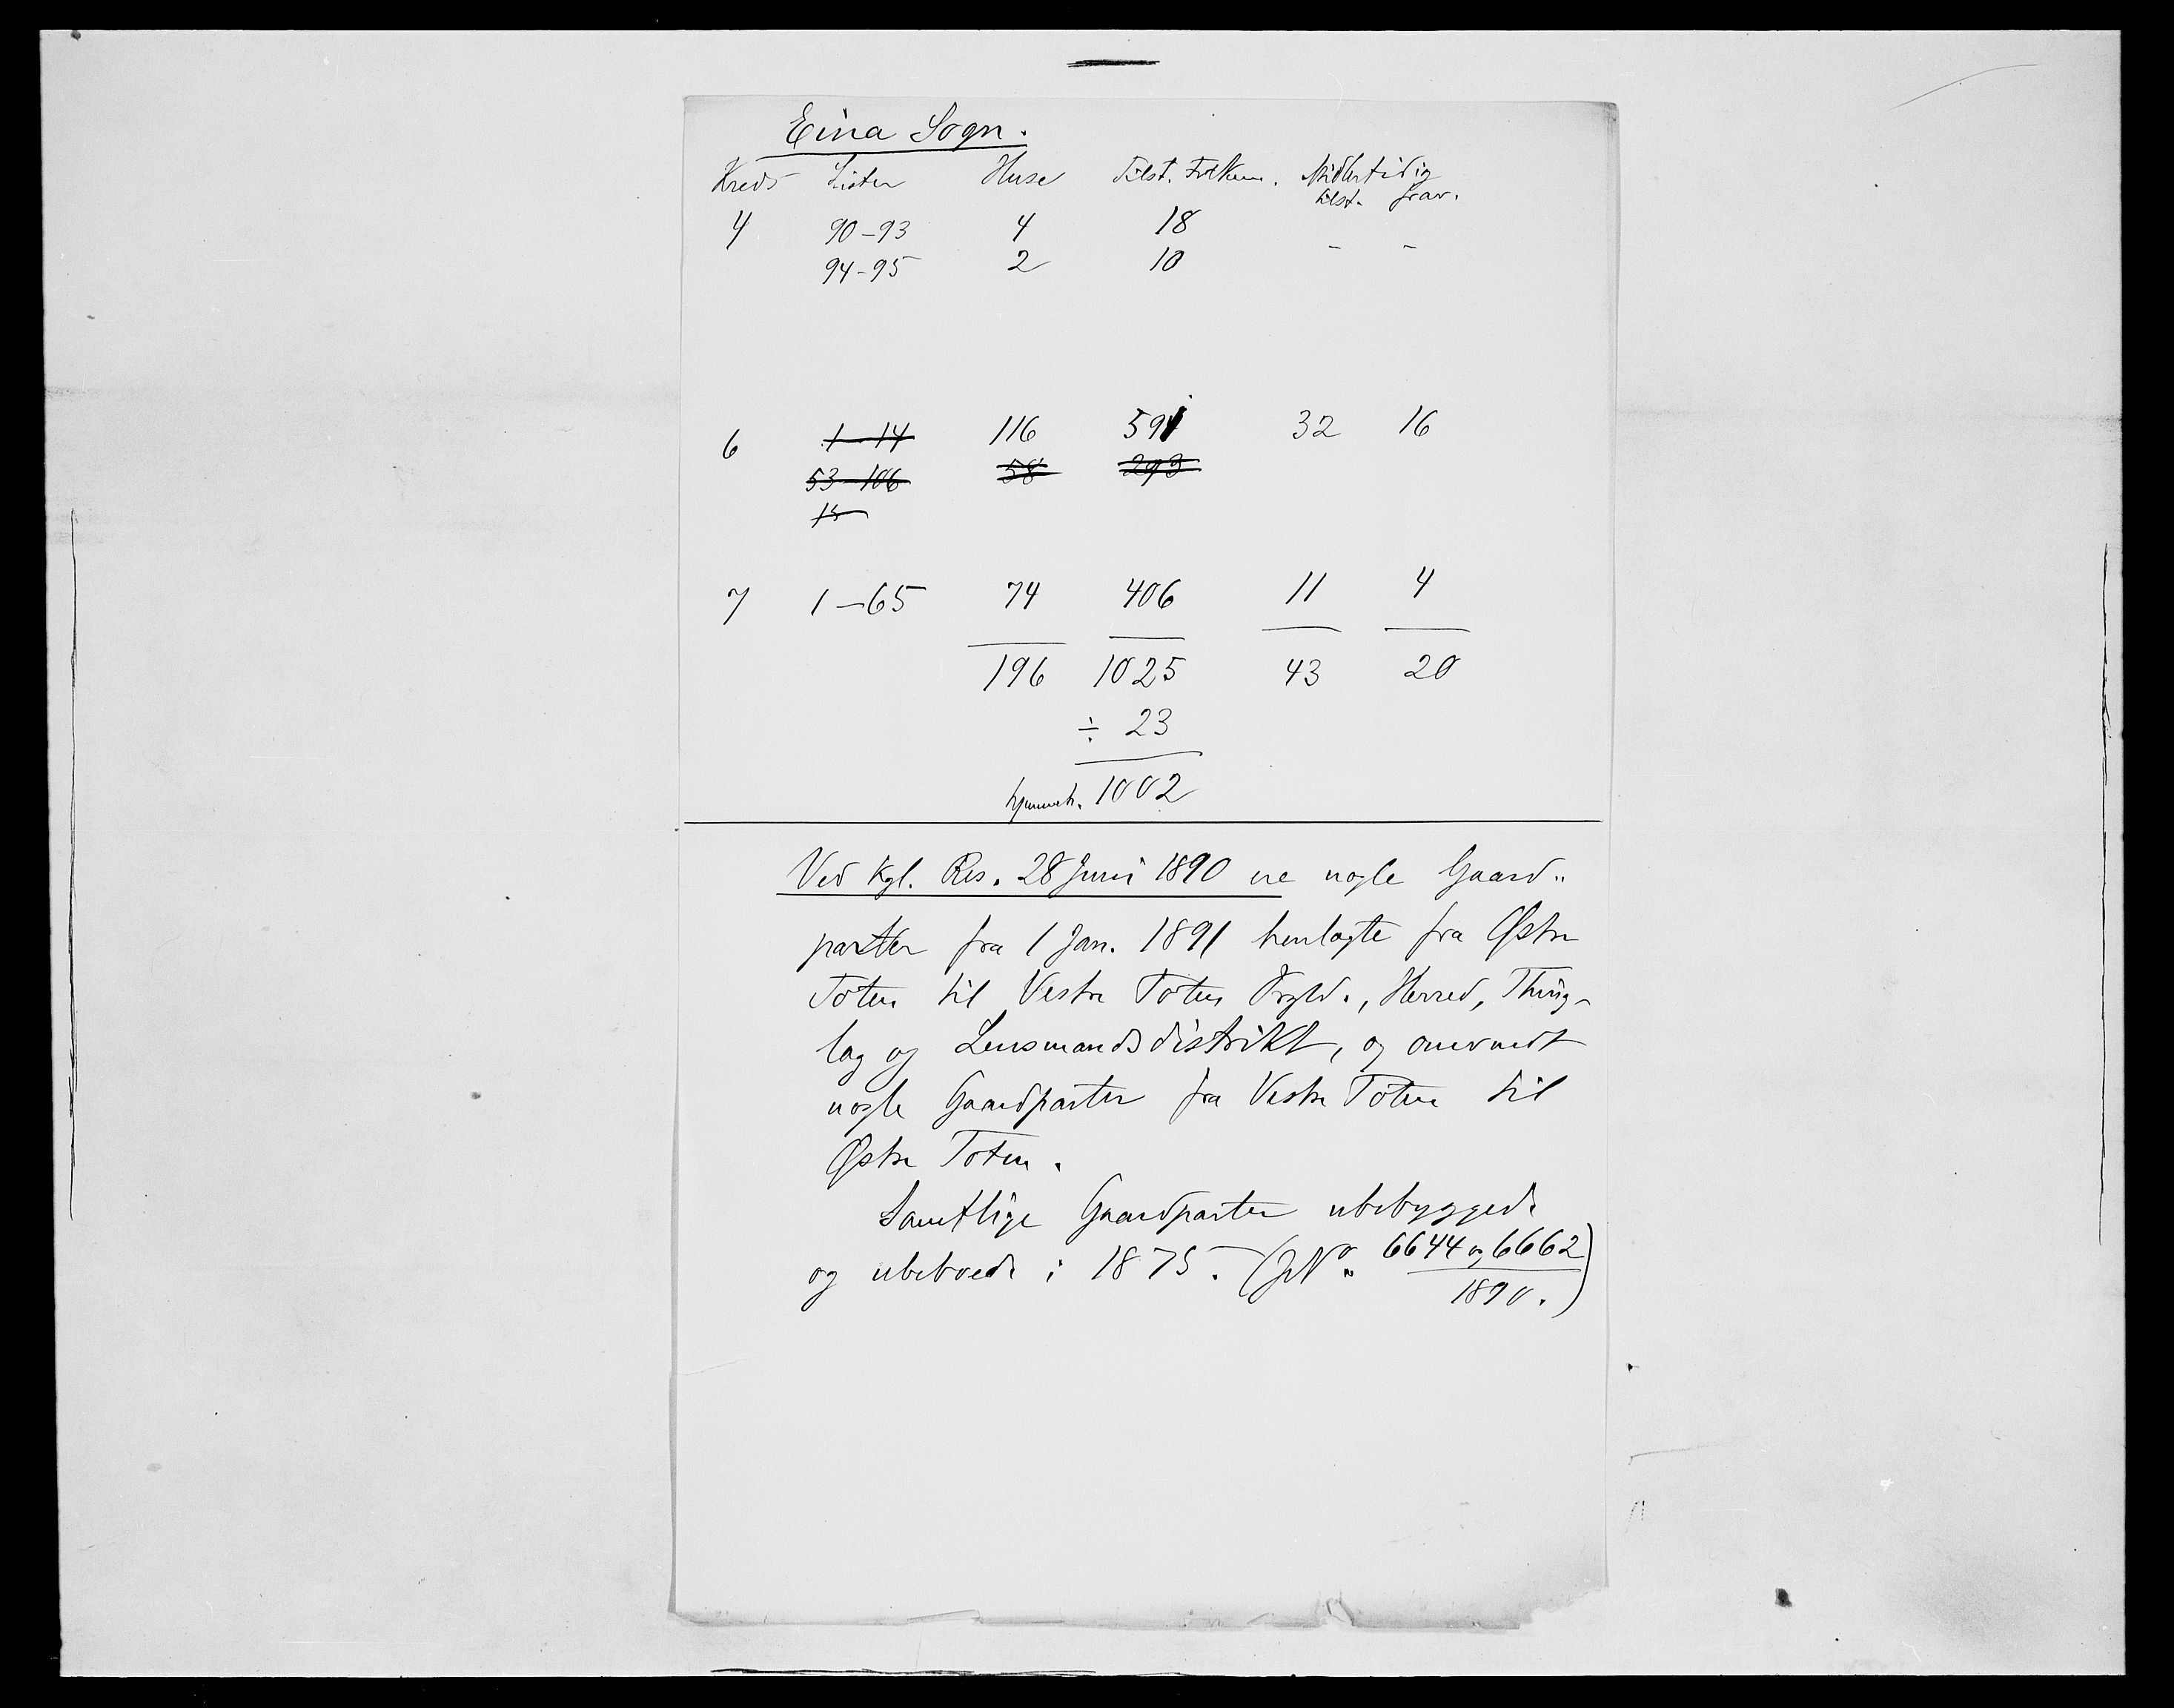 Eina Sogn.
Kreds Lister Huse Tilst. Folkem. Midlertidig
tilst. frav.
4 90-93 4 18 - -
94-95 2 10
6 1-14 116 591 32 16
53-106 58 293
15
7 1-65 74 406 11 4
196 1025 43 20
÷ 23
hjemmeh. 1002
Ved Kgl. Res. 28 Juni 1890 ere nogle Gaard-
parter fra 1 Jan. 1891 henlagte fra Østre
Toten til Vestre Toten Prgld., Herred, Thing-
lag og Lensmandsdistrikt, og omvendt
nogle Gaardparter fra Vestre Toten til
Østre Toten.
Samtlige Gaardparter ubebyggede
og ubeboede i 1875. (JNo. 6644 og 6662
1890.)